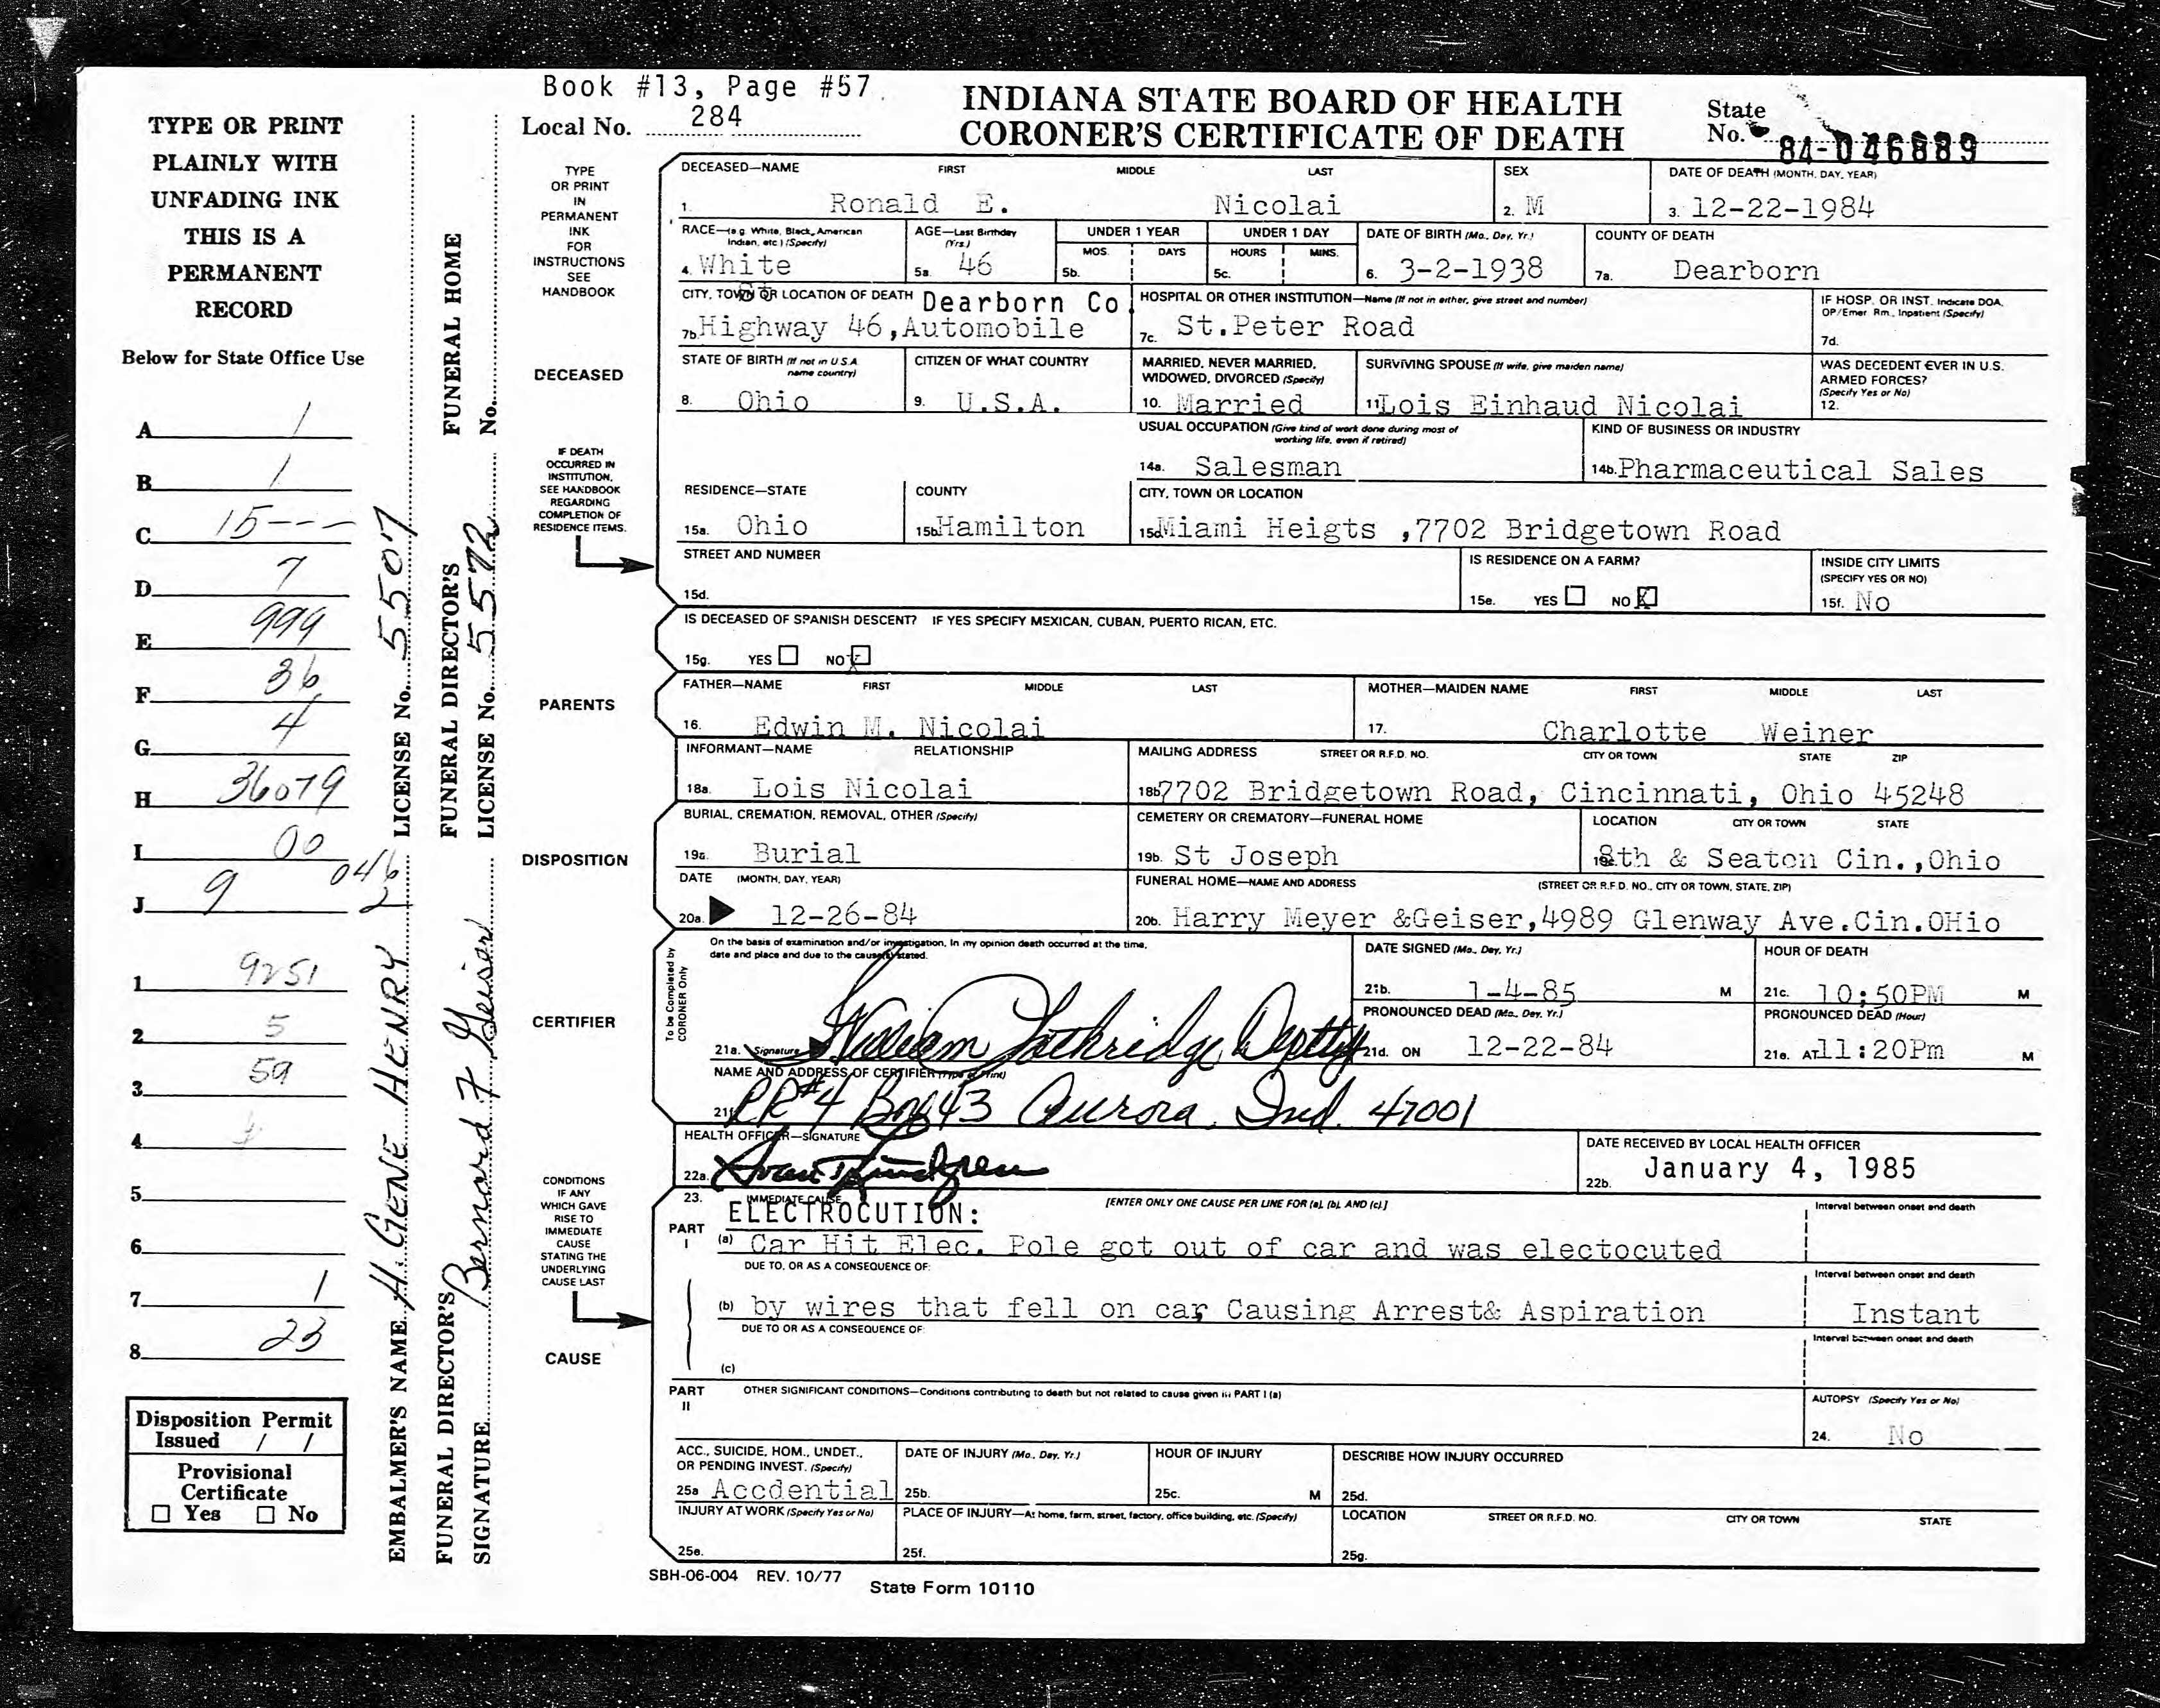 Book #13, Page #57
Local No. 284
INDIANA STATE BOARD OF HEALTH
CORONER'S CERTIFICATE OF DEATH
State
No. 84-046889
TYPE OR PRINT
PLAINLY WITH
UNFADING INK
THIS IS A
PERMANENT
RECORD
Below for State Office Use
A 1
B 1
C 15---
D 7
E 999
F 36
G 4
H 36079
I 00
J 9 046
2
1 9251
2 5
3 59
4
5
6
7 1
8 23
Disposition Permit
Issued / /
Provisional
Certificate
☐ Yes ☐ No
EMBALMER'S NAME H. GENE HENRY LICENSE No. 5507
FUNERAL DIRECTOR'S
SIGNATURE Bernard F Geiser
FUNERAL DIRECTOR'S
LICENSE No. 5572
FUNERAL HOME
No.
TYPE
OR PRINT
IN
PERMANENT
INK
FOR
INSTRUCTIONS
SEE
HANDBOOK
DECEASED
IF DEATH
OCCURRED IN
INSTITUTION,
SEE HANDBOOK
REGARDING
COMPLETION OF
RESIDENCE ITEMS.
PARENTS
DISPOSITION
CERTIFIER
CONDITIONS
IF ANY
WHICH GAVE
RISE TO
IMMEDIATE
CAUSE
STATING THE
UNDERLYING
CAUSE LAST
CAUSE
DECEASED—NAME FIRST MIDDLE LAST SEX DATE OF DEATH (MONTH, DAY, YEAR)
1. Ronald E. Nicolai 2. M 3. 12-22-1984
RACE—(e.g. White, Black, American Indian, etc.) (Specify) AGE—Last Birthday (Yrs.) UNDER 1 YEAR UNDER 1 DAY DATE OF BIRTH (Mo., Day, Yr.) COUNTY OF DEATH
MOS. DAYS HOURS MINS.
4. White 5a. 46 5b. 5c. 6. 3-2-1938 7a. Dearborn
CITY, TOWN OR LOCATION OF DEATH Dearborn Co. HOSPITAL OR OTHER INSTITUTION—Name (If not in either, give street and number) IF HOSP. OR INST. Indicate DOA, OP/Emer. Rm., Inpatient (Specify)
7b. Highway 46,Automobile 7c. St.Peter Road 7d.
STATE OF BIRTH (If not in U.S.A. name country) CITIZEN OF WHAT COUNTRY MARRIED, NEVER MARRIED, WIDOWED, DIVORCED (Specify) SURVIVING SPOUSE (If wife, give maiden name) WAS DECEDENT EVER IN U.S. ARMED FORCES? (Specify Yes or No)
8. Ohio 9. U.S.A. 10. Married 11. Lois Einhaud Nicolai 12.
USUAL OCCUPATION (Give kind of work done during most of working life, even if retired) KIND OF BUSINESS OR INDUSTRY
14a. Salesman 14b. Pharmaceutical Sales
RESIDENCE—STATE COUNTY CITY, TOWN OR LOCATION
15a. Ohio 15b. Hamilton 15c. Miami Heigts ,7702 Bridgetown Road
STREET AND NUMBER IS RESIDENCE ON A FARM? INSIDE CITY LIMITS (SPECIFY YES OR NO)
15d. 15e. YES ☐ NO ☒ 15f. No
IS DECEASED OF SPANISH DESCENT? IF YES SPECIFY MEXICAN, CUBAN, PUERTO RICAN, ETC.
15g. YES ☐ NO ☒
FATHER—NAME FIRST MIDDLE LAST MOTHER—MAIDEN NAME FIRST MIDDLE LAST
16. Edwin M. Nicolai 17. Charlotte Weiner
INFORMANT—NAME RELATIONSHIP MAILING ADDRESS STREET OR R.F.D. NO. CITY OR TOWN STATE ZIP
18a. Lois Nicolai 18b. 7702 Bridgetown Road, Cincinnati, Ohio 45248
BURIAL, CREMATION, REMOVAL, OTHER (Specify) CEMETERY OR CREMATORY—FUNERAL HOME LOCATION CITY OR TOWN STATE
19a. Burial 19b. St Joseph 19c. 8th & Seaton Cin.,Ohio
DATE (MONTH, DAY, YEAR) FUNERAL HOME—NAME AND ADDRESS (STREET OR R.F.D. NO., CITY OR TOWN, STATE, ZIP)
20a. 12-26-84 20b. Harry Meyer &Geiser,4989 Glenway Ave.Cin.OHio
To be Completed by
CORONER Only
On the basis of examination and/or investigation, in my opinion death occurred at the time,
date and place and due to the cause(s) stated.
DATE SIGNED (Mo., Day, Yr.) HOUR OF DEATH
21b. 1-4-85 M 21c. 10:50PM M
PRONOUNCED DEAD (Mo., Day, Yr.) PRONOUNCED DEAD (Hour)
21a. Signature William Lothridge Deptty 21d. ON 12-22-84 21e. AT 11:20Pm M
NAME AND ADDRESS OF CERTIFIER (Type or Print)
21f. RR#4 Box 43 Aurora, Ind. 47001
HEALTH OFFICER—SIGNATURE DATE RECEIVED BY LOCAL HEALTH OFFICER
22a. 22b. January 4, 1985
23. IMMEDIATE CAUSE [ENTER ONLY ONE CAUSE PER LINE FOR (a), (b), AND (c).] Interval between onset and death
ELECTROCUTION:
PART I (a) Car Hit Elec. Pole got out of car and was electocuted
DUE TO, OR AS A CONSEQUENCE OF: Interval between onset and death
(b) by wires that fell on car, Causing Arrest& Aspiration Instant
DUE TO OR AS A CONSEQUENCE OF: Interval between onset and death
(c)
PART II OTHER SIGNIFICANT CONDITIONS—Conditions contributing to death but not related to cause given in PART I (a) AUTOPSY (Specify Yes or No)
24. No
ACC., SUICIDE, HOM., UNDET., OR PENDING INVEST. (Specify) DATE OF INJURY (Mo., Day, Yr.) HOUR OF INJURY DESCRIBE HOW INJURY OCCURRED
25a Accdential 25b. 25c. M 25d.
INJURY AT WORK (Specify Yes or No) PLACE OF INJURY—At home, farm, street, factory, office building, etc. (Specify) LOCATION STREET OR R.F.D. NO. CITY OR TOWN STATE
25e. 25f. 25g.
SBH-06-004 REV. 10/77 State Form 10110